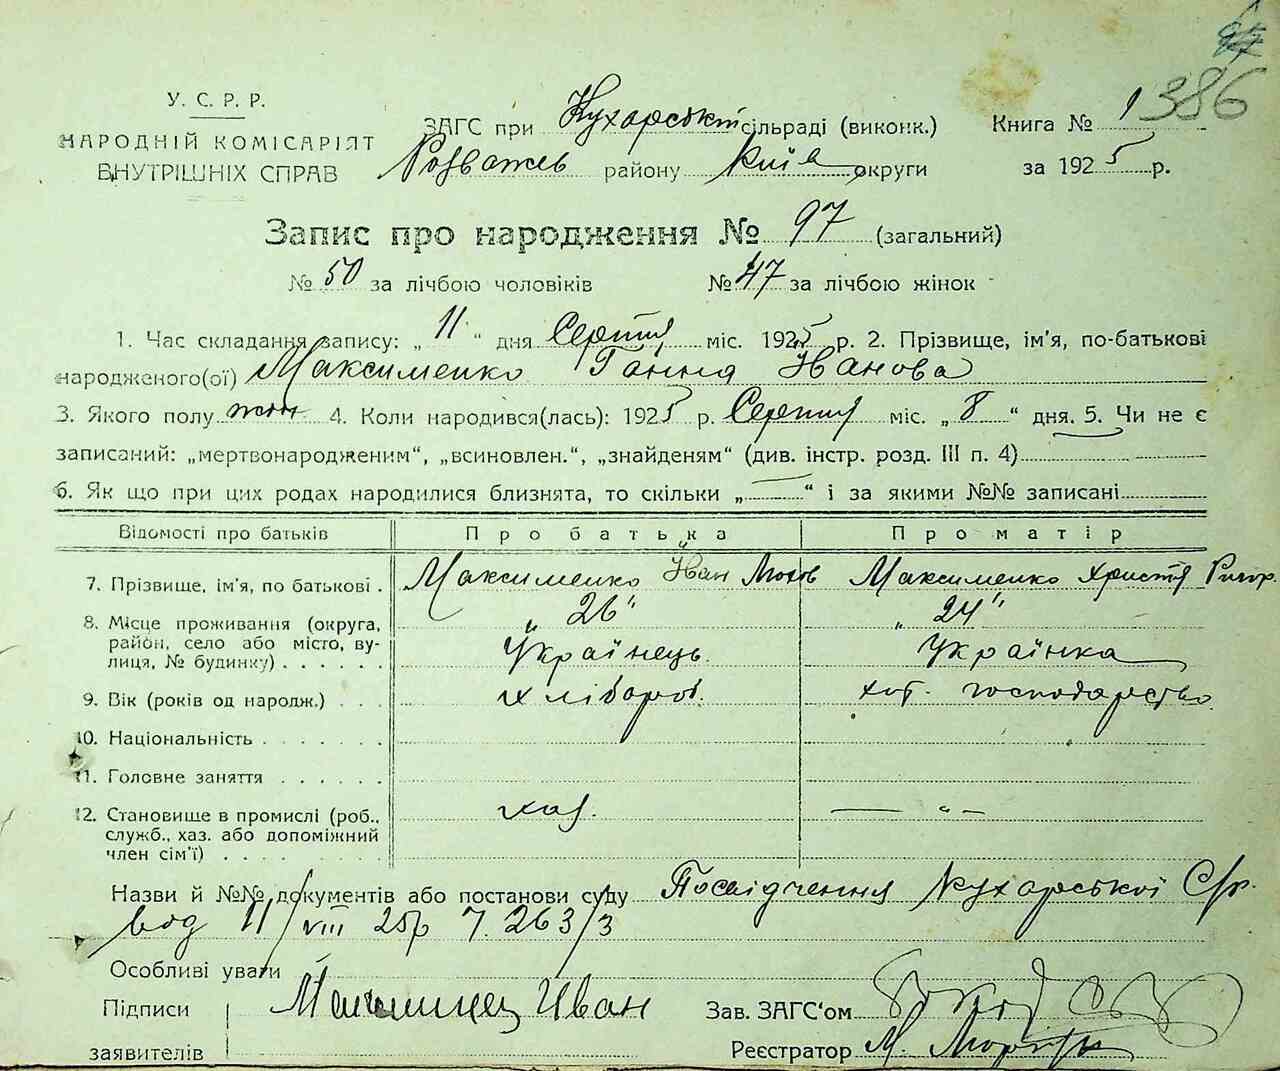 386
У. С. Р. Р.
НАРОДНІЙ КОМІСАРІЯТ
ВНУТРІШНІХ СПРАВ
ЗАГС при Кухарській сільраді (виконк.) Книга № 1
Розважев району Київ округи за 1925 р.
Запис про народження № 97 (загальний)
№ 50 за лічбою чоловіків № 47 за лічбою жінок
1. Час складання запису: „ 11 “ дня Серпня міс. 1925 р. 2. Прізвище, ім'я, по-батькові
народженого(ої) Максименко Ганна Іванова
3. Якого полу жін 4. Коли народився(лась): 1925 р. Серпня міс. „ 8 “ дня. 5. Чи не є
записаний: „мертвонародженим“, „всиновлен.“, „знайденям“ (див. інстр. розд. III п. 4)
6. Як що при цих родах народилися близнята, то скільки „ “ і за якими №№ записані
Відомості про батьків Про батька Про матір
7. Прізвище, ім'я, по батькові . Максименко Іван Максименко Христя Ригор.
8. Місце проживання (округа, „ 26 “ „ 24 “
район, село або місто, ву-
лиця, № будинку) . . . . . . Українець Українка
9. Вік (років од народж.) . . . хлібороб. хат. господарство
10. Національність . . . . . . .
11. Головне заняття . . . . . .
12. Становище в промислі (роб., хаз. — „ —
служб., хаз. або допоміжний
член сім'ї) . . . . . . . . .
Назви й №№ документів або постанови суду Посвідчення Кухарської С/р.
від 11/VIII 25р Ч. 263/3
Особливі уваги
Підписи Иван Зав. ЗАГС'ом
заявителів Реєстратор М.